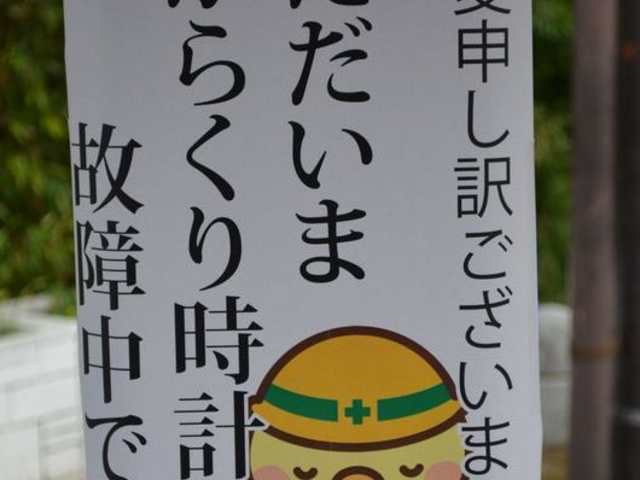 変申し訳ございま
ただいま
からくり時計
故障中で